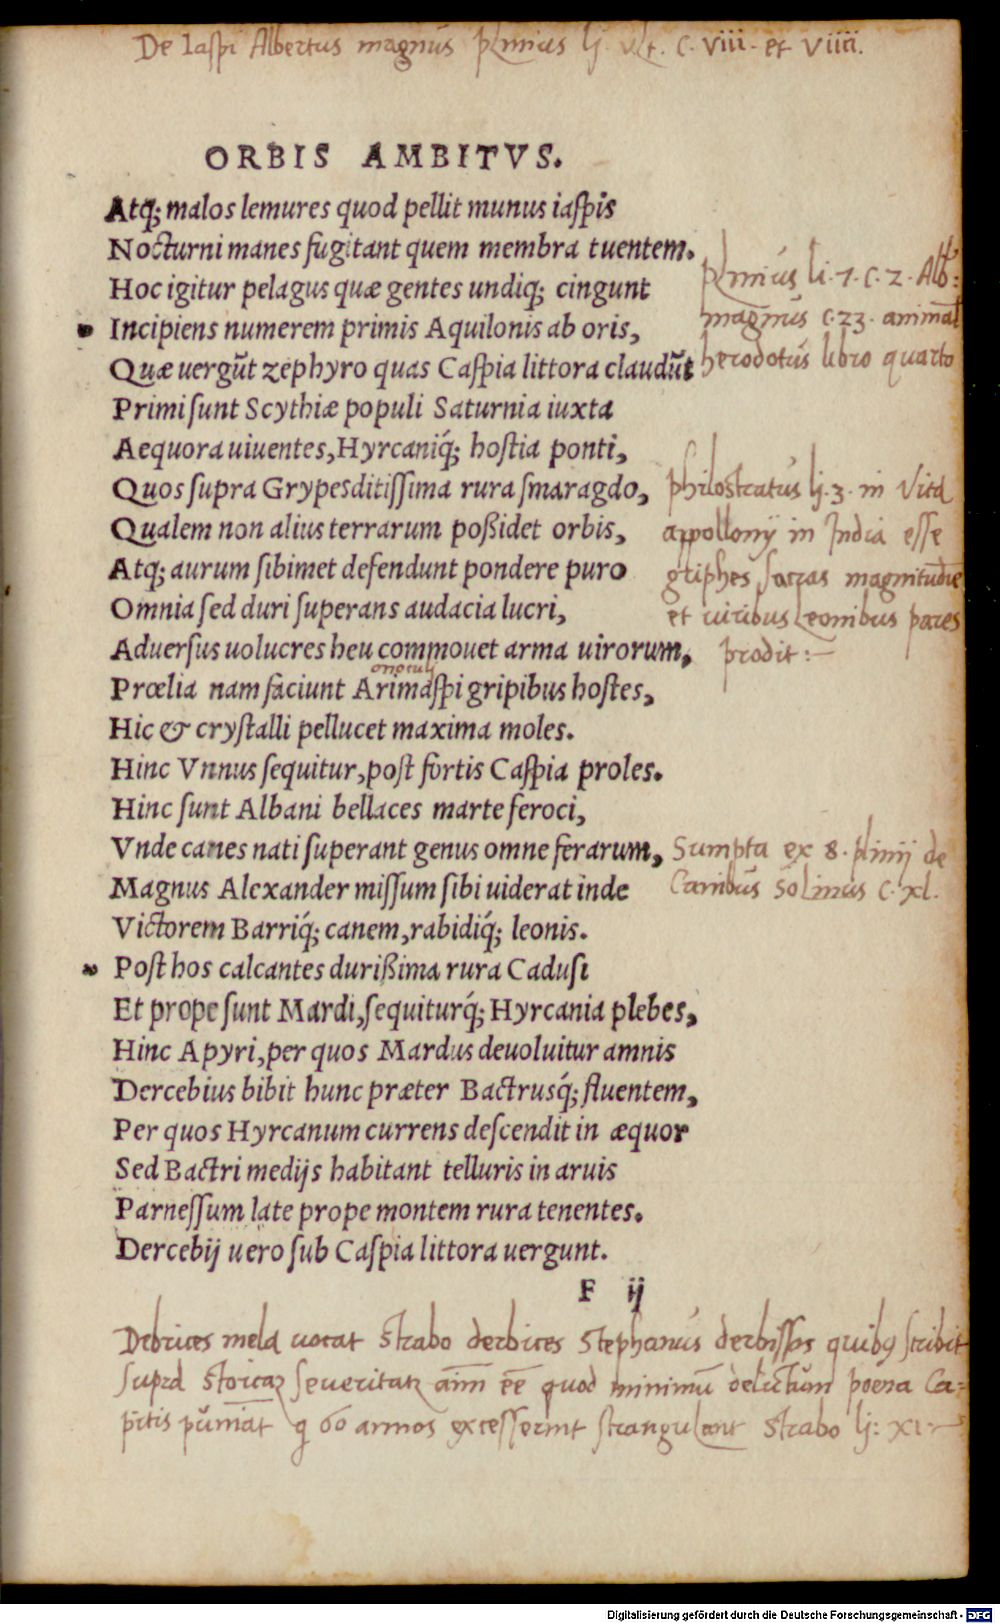 De Iaspi Albertus magnus plinius lj. ult. c. viii. et viiii.
ORBIS AMBITVS.
Atq; malos lemures quod pellit munus iaſpis
Nocturni manes fugitant quem membra tuentem.
Hoc igitur pelagus quæ gentes undiq; cingunt
Incipiens numerem primis Aquilonis ab oris,
Quæ uergūt zephyro quas Caſpia littora claudūt
plinius li. 7. c. 2. Alb:
magnus c. 23. animal
herodotus libro quarto
Primi ſunt Scythiæ populi Saturnia iuxta
Aequora uiuentes, Hyrcaniq́; hoſtia ponti,
Quos ſupra Grypes ditiſſima rura ſmaragdo,
Qualem non alius terrarum poßidet orbis,
Atq; aurum ſibimet defendunt pondere puro
Omnia ſed duri ſuperans audacia lucri,
Aduerſus uolucres heu commouet arma uirorum,
philostratus lj. 3. in Vita
appollonij in India esse
griphes sacras magnitudīe
et viribus Leonibus pares
prodit :~
onoculj
Prœlia nam faciunt Arimaſpi gripibus hoſtes,
Hic & cryſtalli pellucet maxima moles.
Hinc Vnnus ſequitur, poſt fortis Caſpia proles.
Hinc ſunt Albani bellaces marte feroci,
Vnde canes nati ſuperant genus omne ferarum,
Magnus Alexander miſſum ſibi uiderat inde
Sumpta ex 8. plinij de
Canibus Solinus c. xl.
Victorem Barriq́; canem, rabidiq́; leonis.
Poſt hos calcantes durißima rura Caduſi
Et prope ſunt Mardi, ſequiturq́; Hyrcania plebes,
Hinc Apyri, per quos Mardus deuoluitur amnis
Dercebius bibit hunc præter Bactrusq́; fluentem,
Per quos Hyrcanum currens deſcendit in æquor
Sed Bactri medijs habitant telluris in aruis
Parneſſum late prope montem rura tenentes.
Dercebij uero ſub Caſpia littora uergunt.
F ij
Debrices mela vocat Strabo derbices Stephanus derbissos quibus scribit
supra Stoicaꝝ severitatē aīm eē quod minimū delictum poena Ca-
pitis pūniāt q 60 annos excesserint strangulant Strabo lj: XI
Digitalisierung gefördert durch die Deutsche Forschungsgemeinschaft - DFG